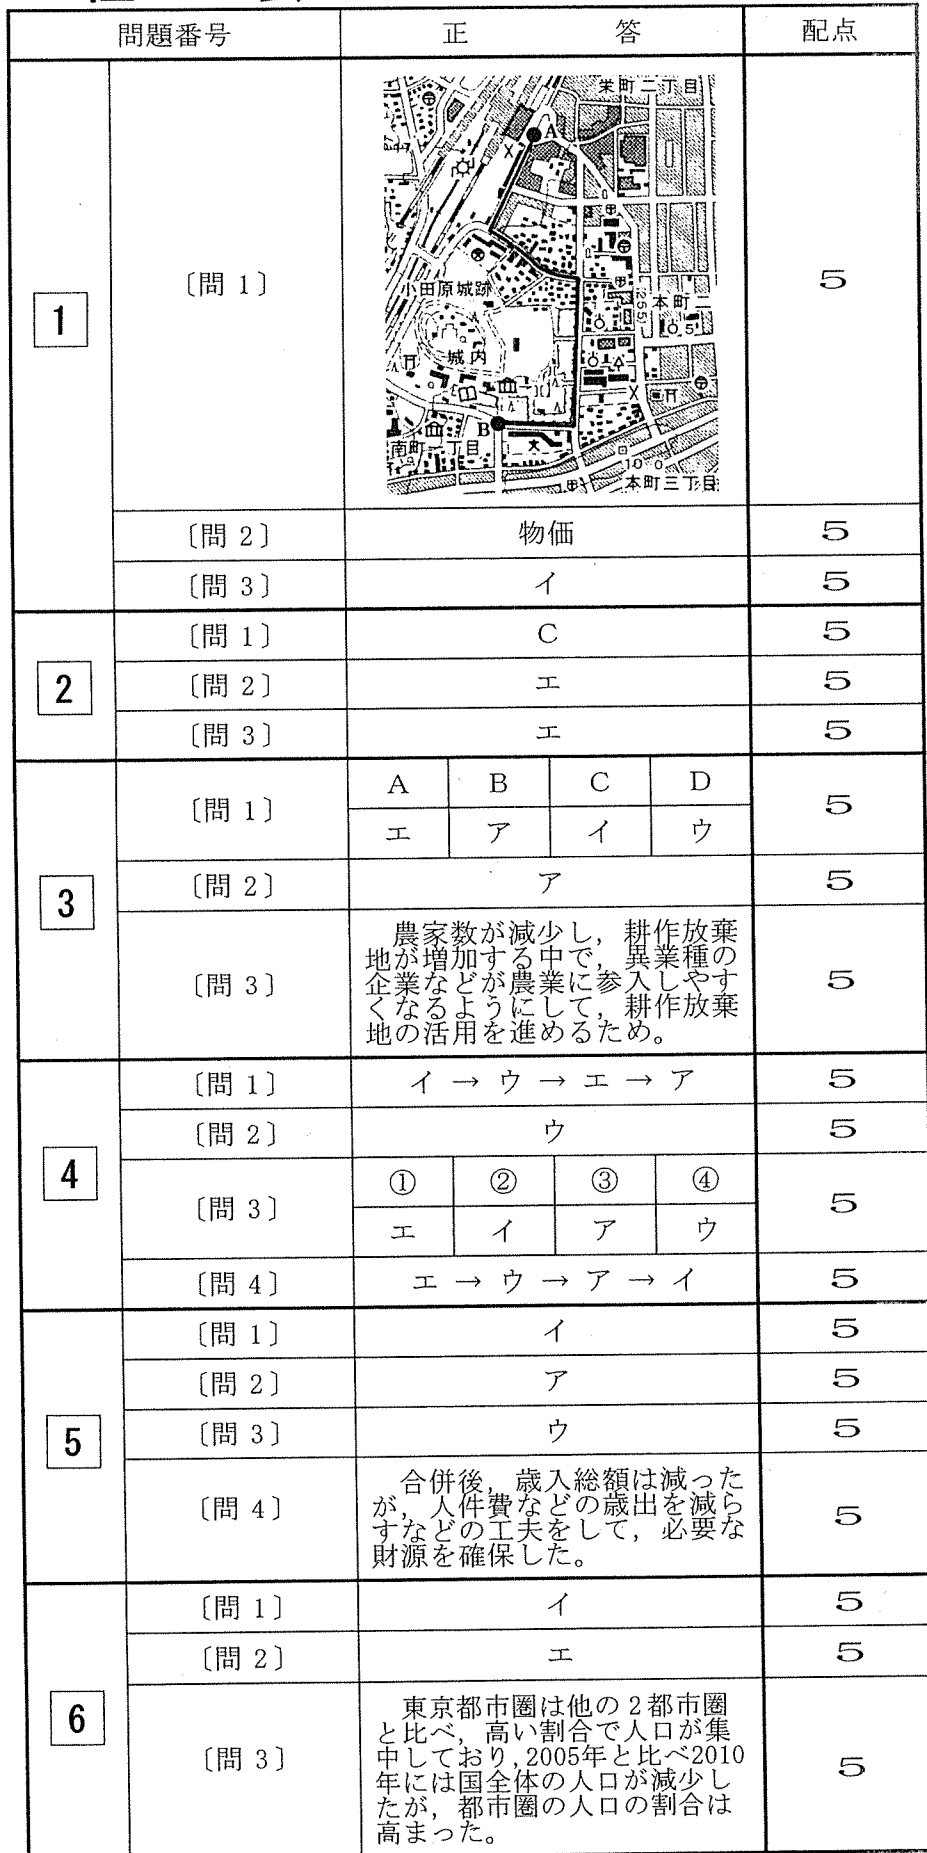 問題番号 正答 配点
1
〔問 1〕
栄町二丁目
A
小田原城跡
255
本町二
5
城内
B
南町一丁目
10.0
本町三丁目
5
〔問 2〕 物価 5
〔問 3〕 イ 5
2
〔問 1〕 C 5
〔問 2〕 エ 5
〔問 3〕 エ 5
3
〔問 1〕
A B C D
エ ア イ ウ
5
〔問 2〕 ア 5
〔問 3〕
農家数が減少し，耕作放棄
地が増加する中で，異業種の
企業などが農業に参入しやす
くなるようにして，耕作放棄
地の活用を進めるため。
5
4
〔問 1〕 イ → ウ → エ → ア 5
〔問 2〕 ウ 5
〔問 3〕
① ② ③ ④
エ イ ア ウ
5
〔問 4〕 エ → ウ → ア → イ 5
5
〔問 1〕 イ 5
〔問 2〕 ア 5
〔問 3〕 ウ 5
〔問 4〕
合併後，歳入総額は減った
が，人件費などの歳出を減ら
すなどの工夫をして，必要な
財源を確保した。
5
6
〔問 1〕 イ 5
〔問 2〕 エ 5
〔問 3〕
東京都市圏は他の2都市圏
と比べ，高い割合で人口が集
中しており，2005年と比べ2010
年には国全体の人口が減少し
たが，都市圏の人口の割合は
高まった。
5